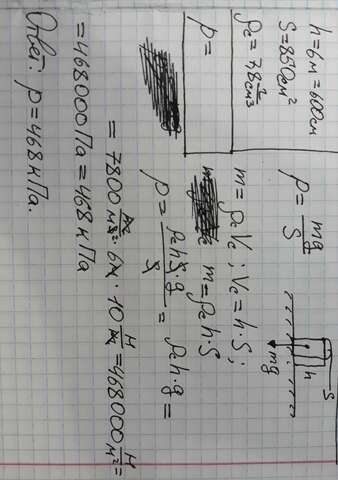 h=6м=600см
S=850см²
ρc=7,8 г/см³
p=
p=mg/S
S
h
mg
m=ρcVc; Vc=h·S;
m=ρch·S
p=ρchS·g/S=ρch·g=
=7800 кг/м³·6м·10 Н/кг=468000 Н/м²=
=468000Па=468кПа
Ответ: p=468кПа.